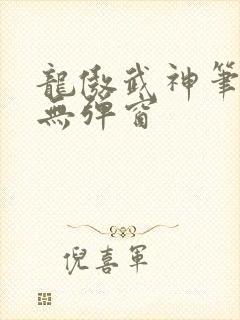 龍傲武神筆
無彈窗
倪喜軍